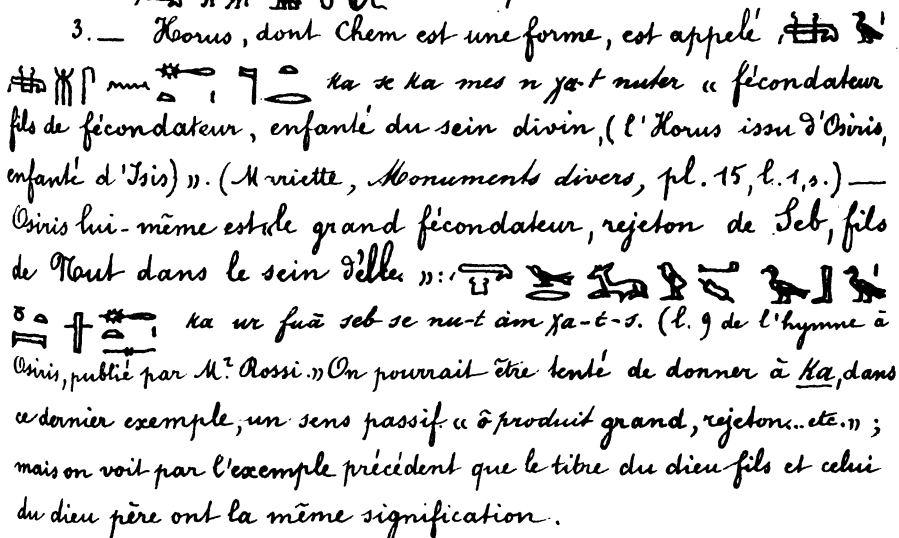 3. — Horus, dont Chem est une forme, est appelé
ka se ka mes n χa-t nuter « fécondateur
fils de fécondateur, enfanté du sein divin, (l'Horus issu d'Osiris,
enfanté d'Isis) ». (Mariette, Monuments divers, pl. 15, l. 1, s.) —
Osiris lui-même est « le grand fécondateur, rejeton de Seb, fils
de Nout dans le sein d'elle. » :
ka ur fuā seb se nu-t ȧm χa-t-s. (l. 9 de l'hymne à
Osiris, publié par Mr. Rossi.» On pourrait être tenté de donner à Ka, dans
ce dernier exemple, un sens passif « ô produit grand, rejeton... etc. » ;
mais on voit par l'exemple précédent que le titre du dieu fils et celui
du dieu père ont la même signification.